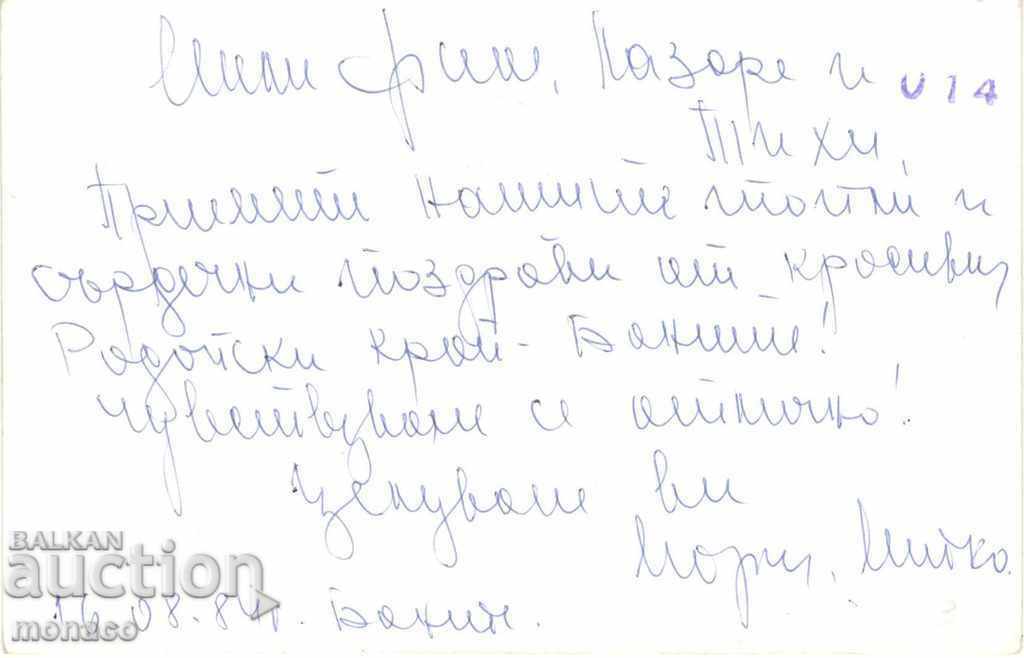 Мили Фили, Назоре и
U14
Тихи,
Приемете нашите топли и
сърдечни поздрави от красивия
Родопски край - Баните!
Чувствуваме се отлично!
Целуваме ви
Мития, Митко.
16.08.84г. Баните.
BALKAN
auction
monaco